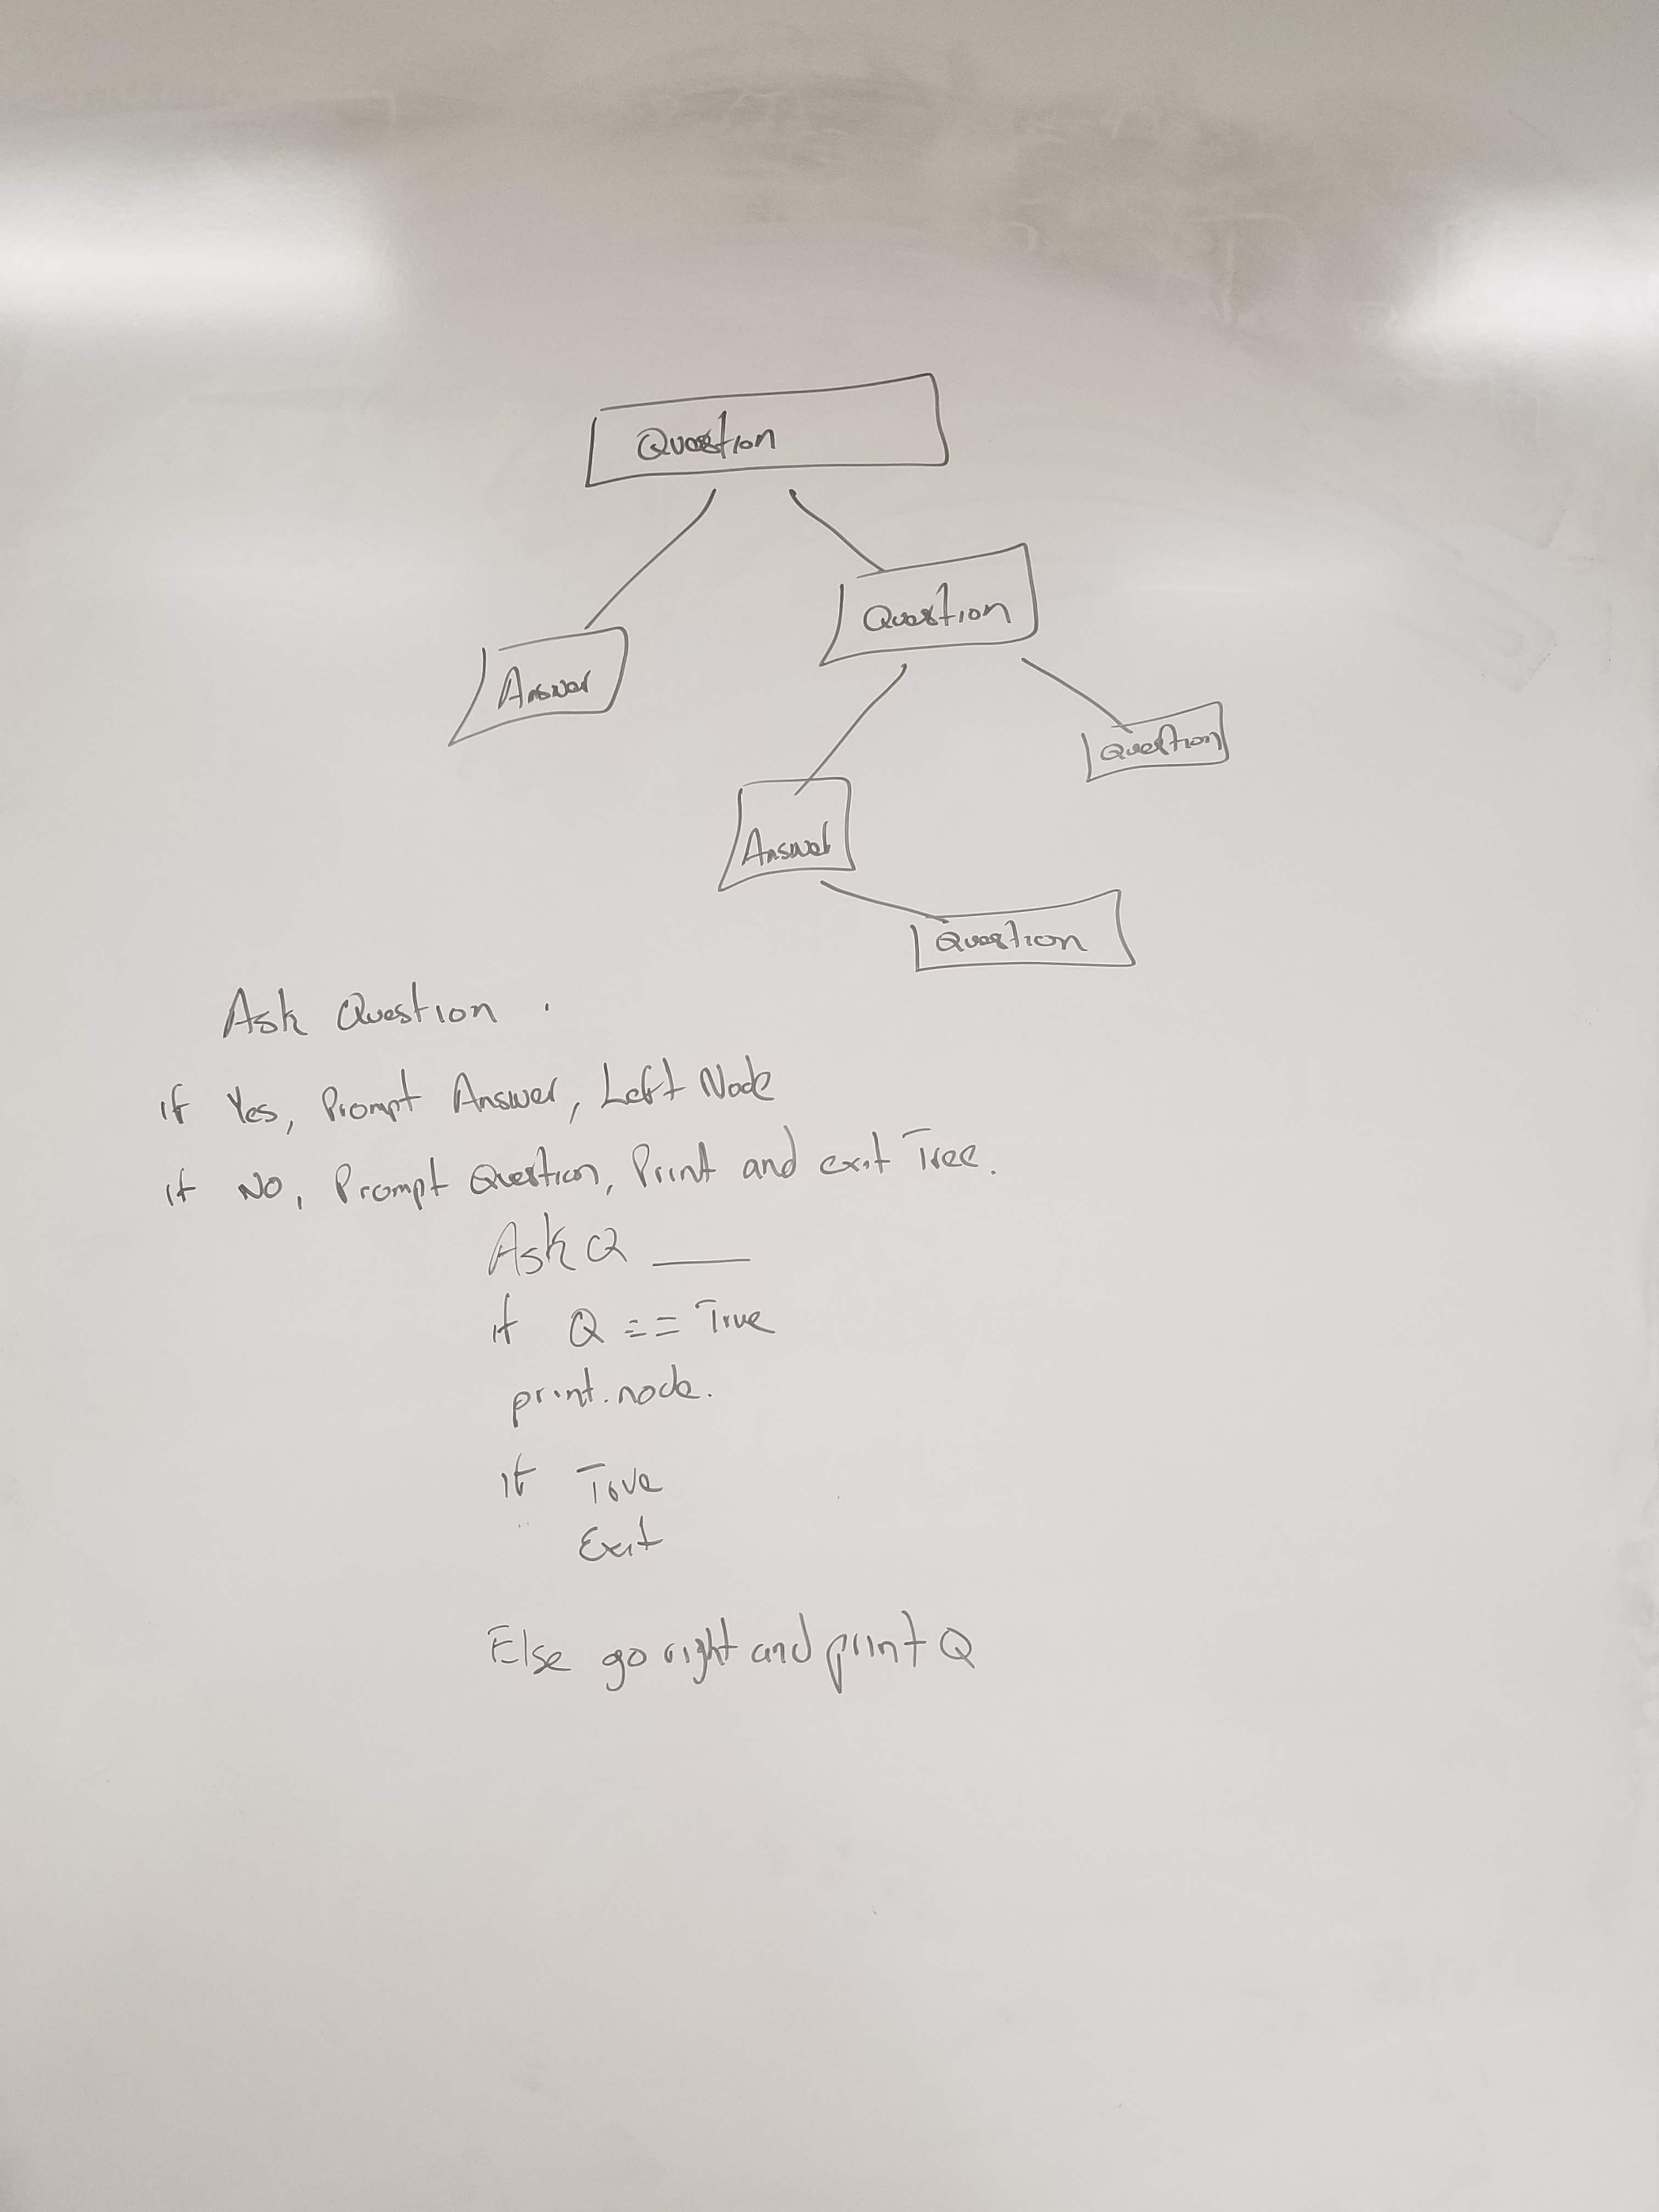 Question
Question
Answer
Question
Answer
Question
Ask Question .
if Yes, Prompt Answer, Left Node
if No, Prompt Question, Print and exit Tree.
Ask Q ___
if Q == True
print.node.
if True
Exit
Else go right and print Q